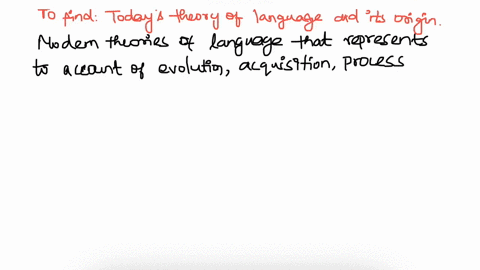 To find: Today's theory of language and its origin.
Modern theories of language that represents
to account of evolution, acquisition, process